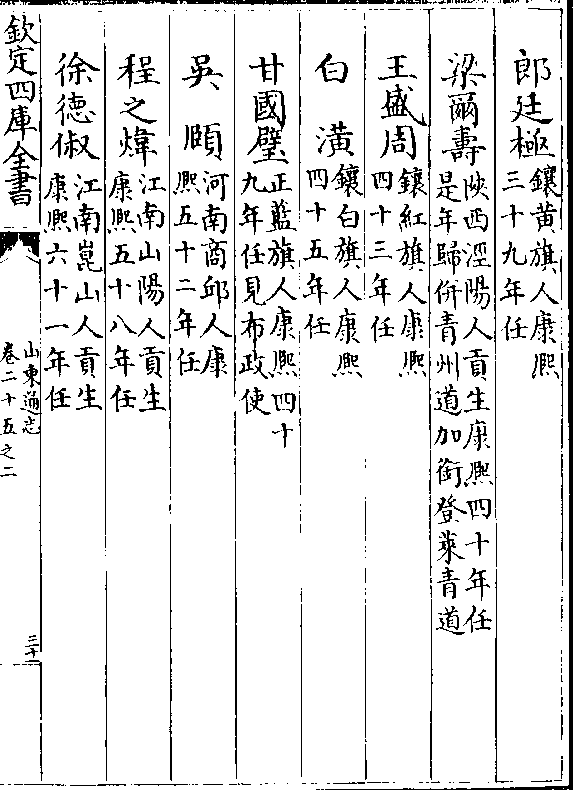 郎廷極鑲黄旗人康熙
三十九年任
梁爾壽陜西涇陽人貢生康熙四十年任
是年歸併青州道加銜登萊青道
王盛周鑲紅旗人康熙
四十三年任
白潢鑲白旗人康熙
四十五年任
甘國璧正藍旗人康熙四十
九年任見布政使
吳頤河南商邱人康
熙五十二年任
程之煒江南山陽人貢生
康熙五十八年任
徐德俶江南崑山人貢生
康熙六十一年任
欽定四庫全書
山東通志
卷二十五之二